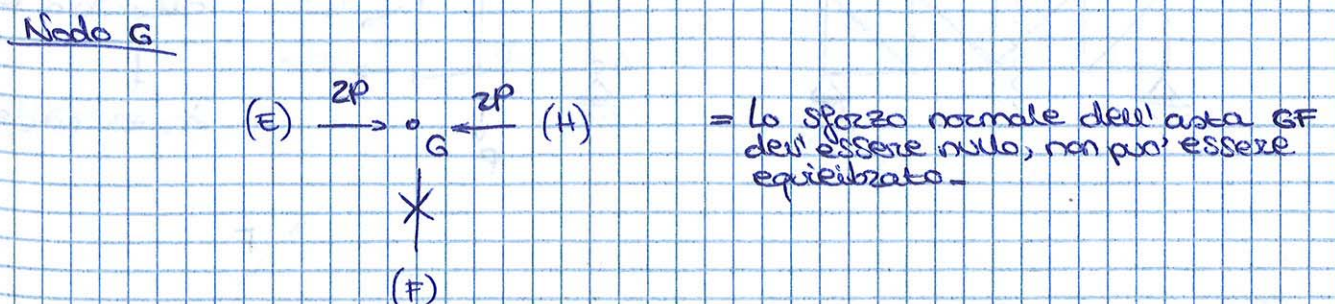 Nodo G
(E) 2P 2P (H) = Lo sforzo normale dell'asta GF
G dev'essere nullo, non puo' essere
equilibrato-
(F)